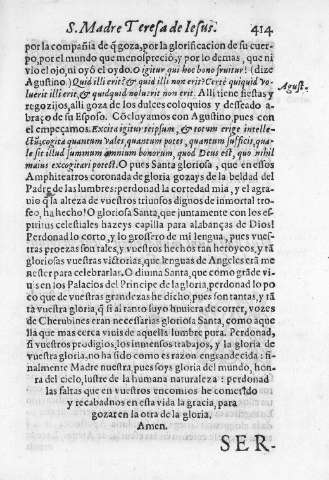 S. Madre Teresa de Iesus. 414
por la compañia de q̃ goza, por la glorificacion de su cuer-
po, por el mundo que menospreciò, y por lo demas, que ni
vio el ojo, ni oyò el oydo. O igitur qui hoc bono fruitur! (dize
Agustino) Quid illi erit? & quid illi non erit? Certè quiquid vo-
luerit illi erit, & quidquid noluerit non erit. Alli tiene fiestas y
regozijos, alli goza de los dulces coloquios y desseado a-
braço de su Esposo. Cõcluyamos con Agustino, pues con
el empeçamos. Excita igitur teipsum, & totum erige intelle-
ctũ, cogita quantum vales, quantum potes, quantum sufficis, qua-
le sit istud summum omnium bonorum, quod Deus est, quo nihil
maius excogitari potest. O pues Santa gloriosa, que en essos
Amphiteatros coronada de gloria gozays de la beldad del
Padre de las lumbres: perdonad la cortedad mia, y el agra-
uio q̃ la alteza de vuestros triunfos dignos de inmortal tro-
feo, ha hecho! O gloriosa Santa, que juntamente con los es-
piritus celestiales hazeys capilla para alabanças de Dios!
Perdonad lo corto, y lo grossero de mi lengua, pues vues-
tras proezas son tales, y vuestros hechos tan heroycos, y tã
gloriosas vuestras victorias, que lenguas de Angeles erã me
nester para celebrarlas. O diuina Santa, que como grãde viu-
en los Palacios del Principe de la gloria, perdonad lo po
co que de vuestras grandezas he dicho, pues son tantas, y tã
ta vuestra gloria, q̃ si al tanto suyo huuiera de correr, vozes
de Cherubines eran necessarias gloriosa Santa, como aque
lla que mas cerca viuis de aquella lumbre pura. Perdonad,
si vuestros prodigios, los inmensos trabajos, y la gloria de
vuestra gloria, no ha sido como es razon engrandecida: fi-
nalmente Madre nuestra, pues soys gloria del mundo, hon-
ra del cielo, lustre de la humana naturaleza: perdonad
las faltas que en vuestros encomios he cometido
y recabadnos en esta vida la gracia, para
gozar en la otra de la gloria.
Amen.
August.
SER-